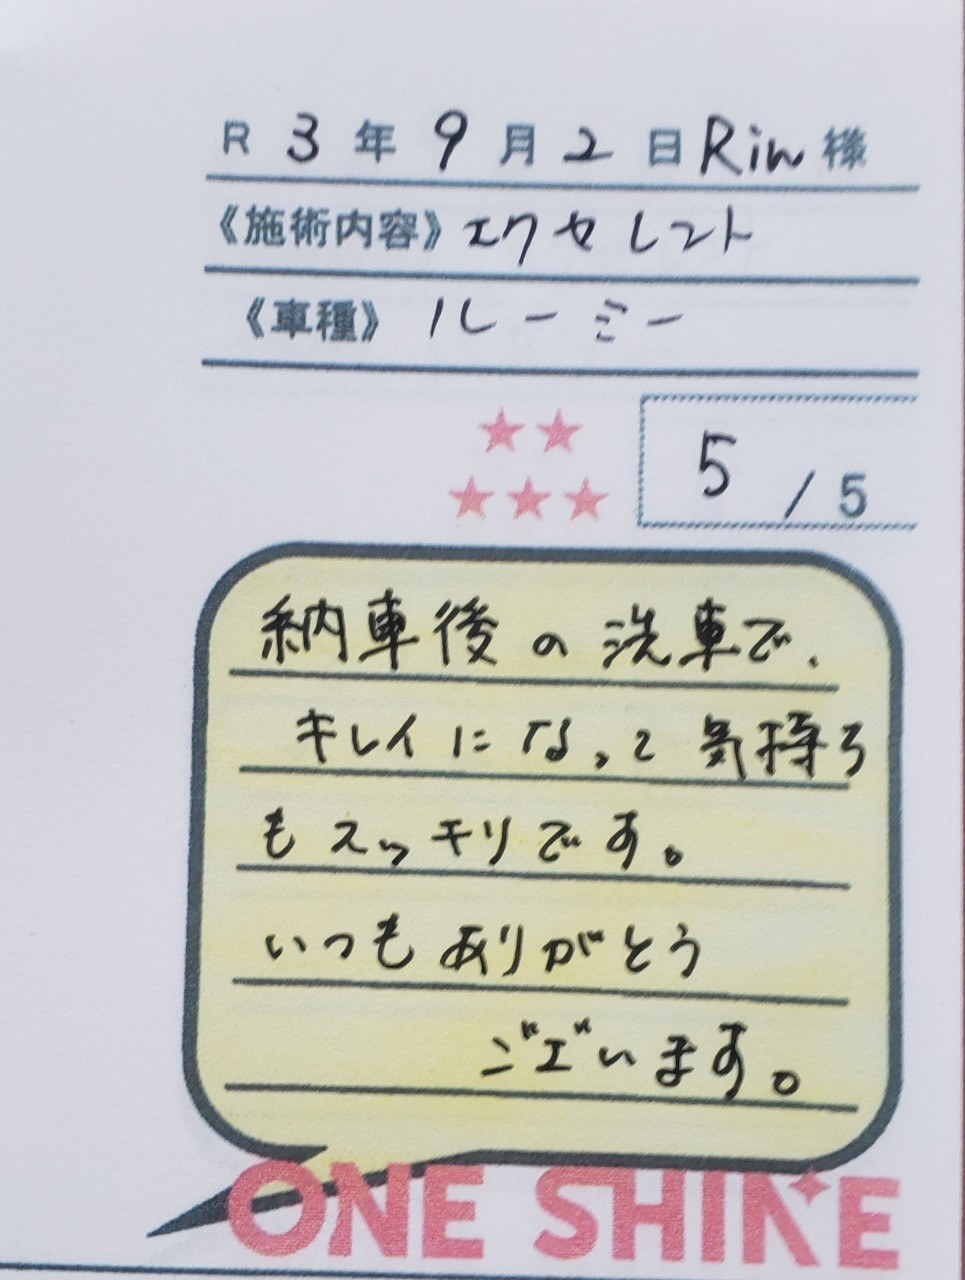 R 3 年 9 月 2 日 Rin 様
《施術内容》エクセレント
《車種》ルーミー
★★
★★★
5 / 5
納車後の洗車で、
キレイになって気持ち
もスッキリです。
いつもありがとう
ございます。
ONE SHINE